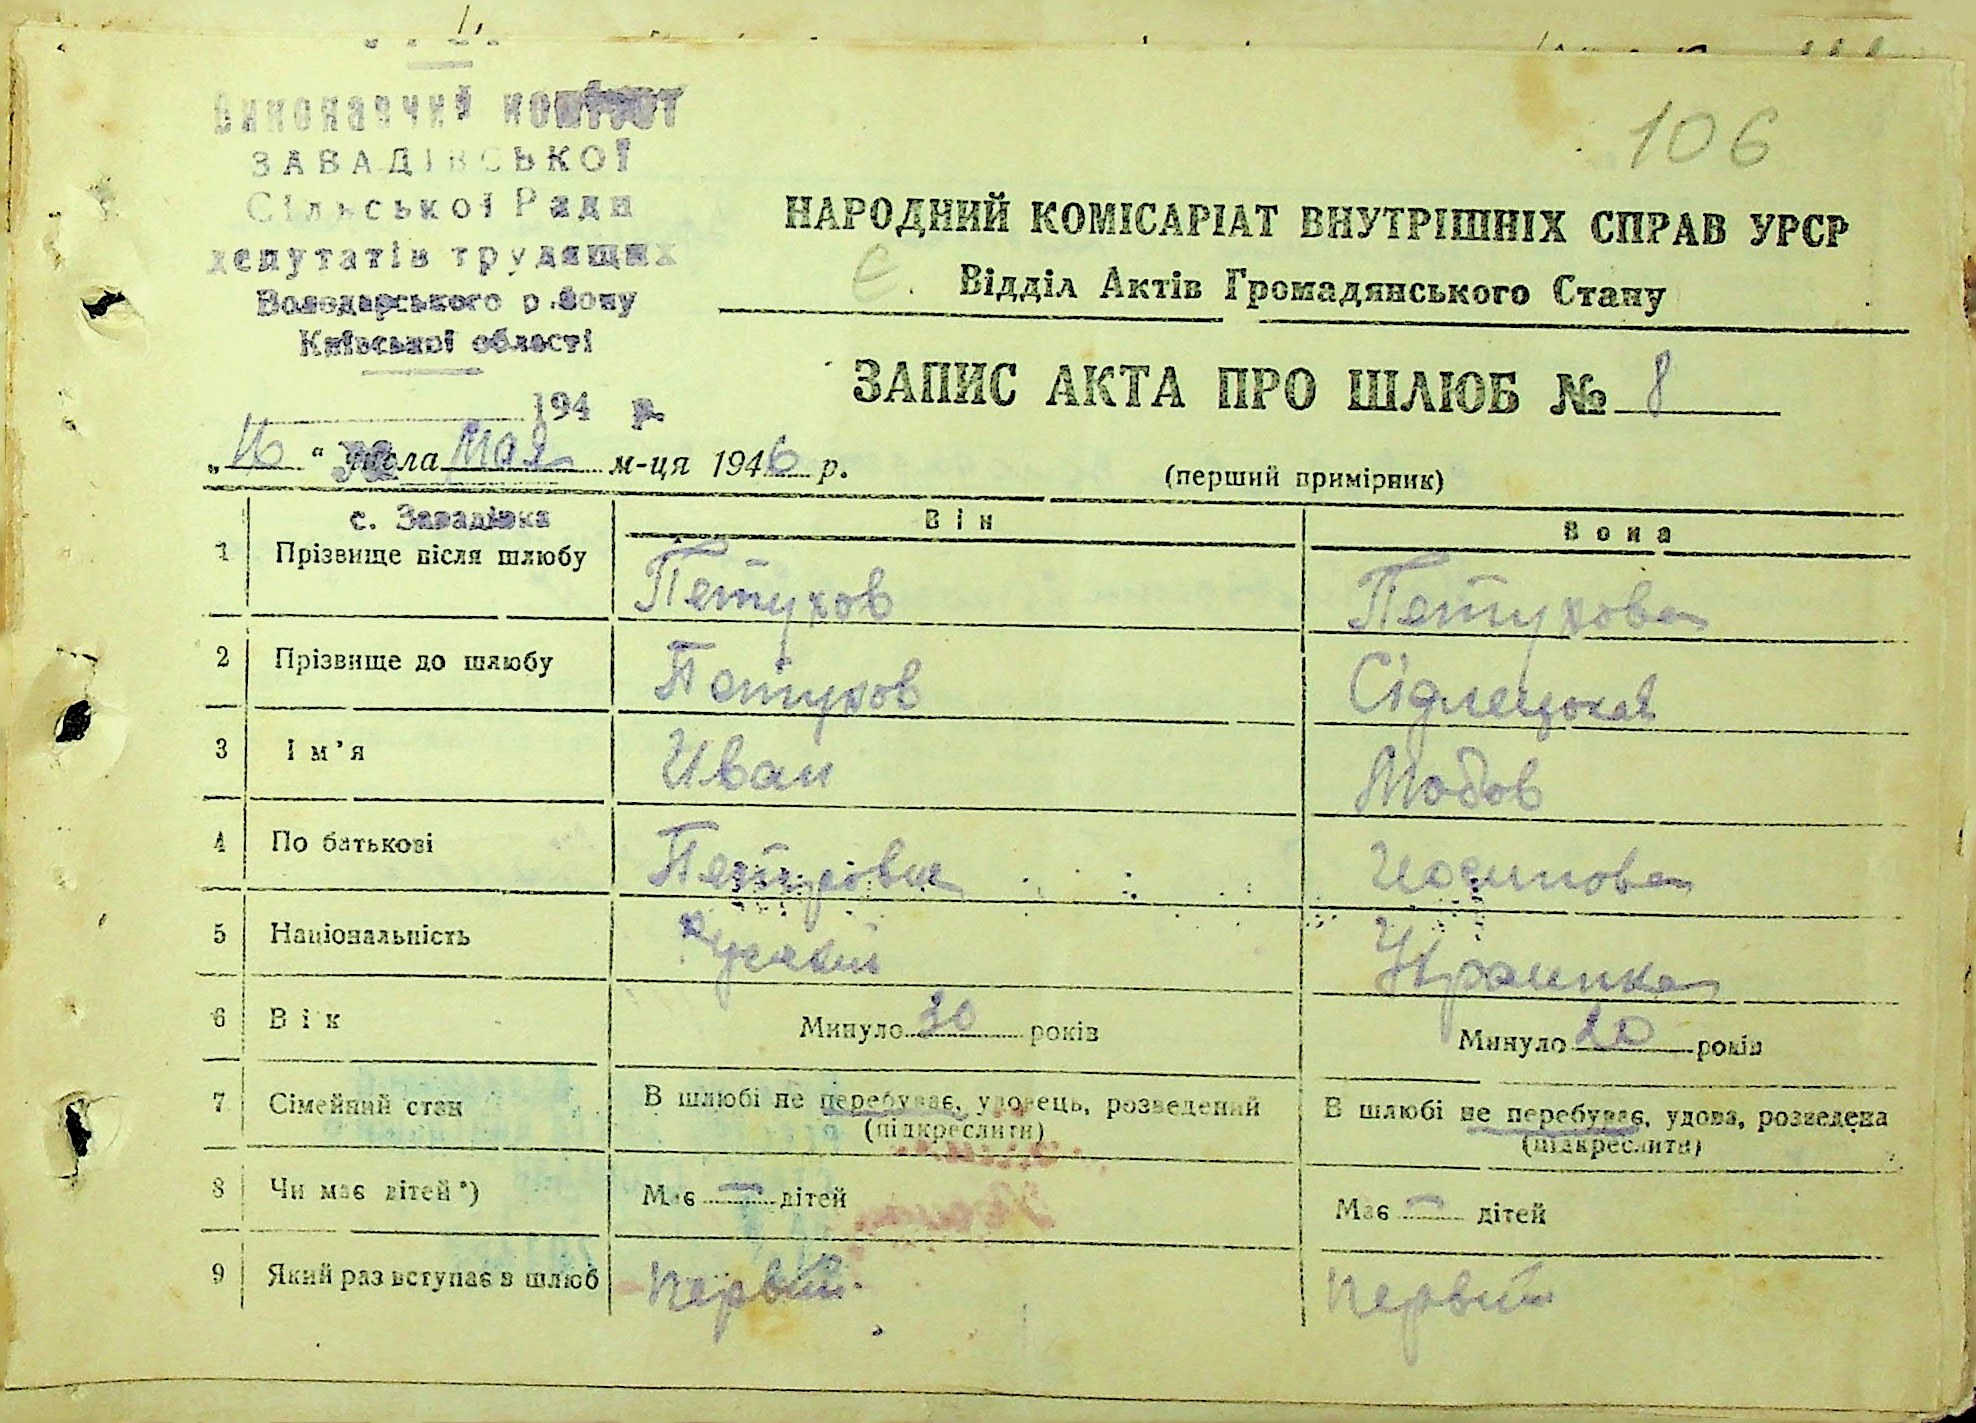 106
Виконавчий комітет
ЗАВАДІВСЬКОЇ
Сільської Ради
депутатів трудящих
Володарського р.йону
Київської області
НАРОДНИЙ КОМІСАРІАТ ВНУТРІШНІХ СПРАВ УРСР
Відділ Актів Громадянського Стану
194 р.
ЗАПИС АКТА ПРО ШЛЮБ № 8
„16“ числа Мая м-ця 1946 р.
(перший примірник)
с. Завадівка
Він
Вона
1 Прізвище після шлюбу Петухов Петухова
2 Прізвище до шлюбу Петухов
3 Ім'я Иван
4 По батькові
5 Національність руский
6 Вік Минуло 30 років Минуло 20 років
7 Сімейний стан В шлюбі не перебуває, удовець, розведений В шлюбі не перебуває, удова, розведена
(підкреслити) (підкреслити)
8 Чи має дітей*) Має — дітей Має — дітей
9 Який раз вступає в шлюб Первий Первий